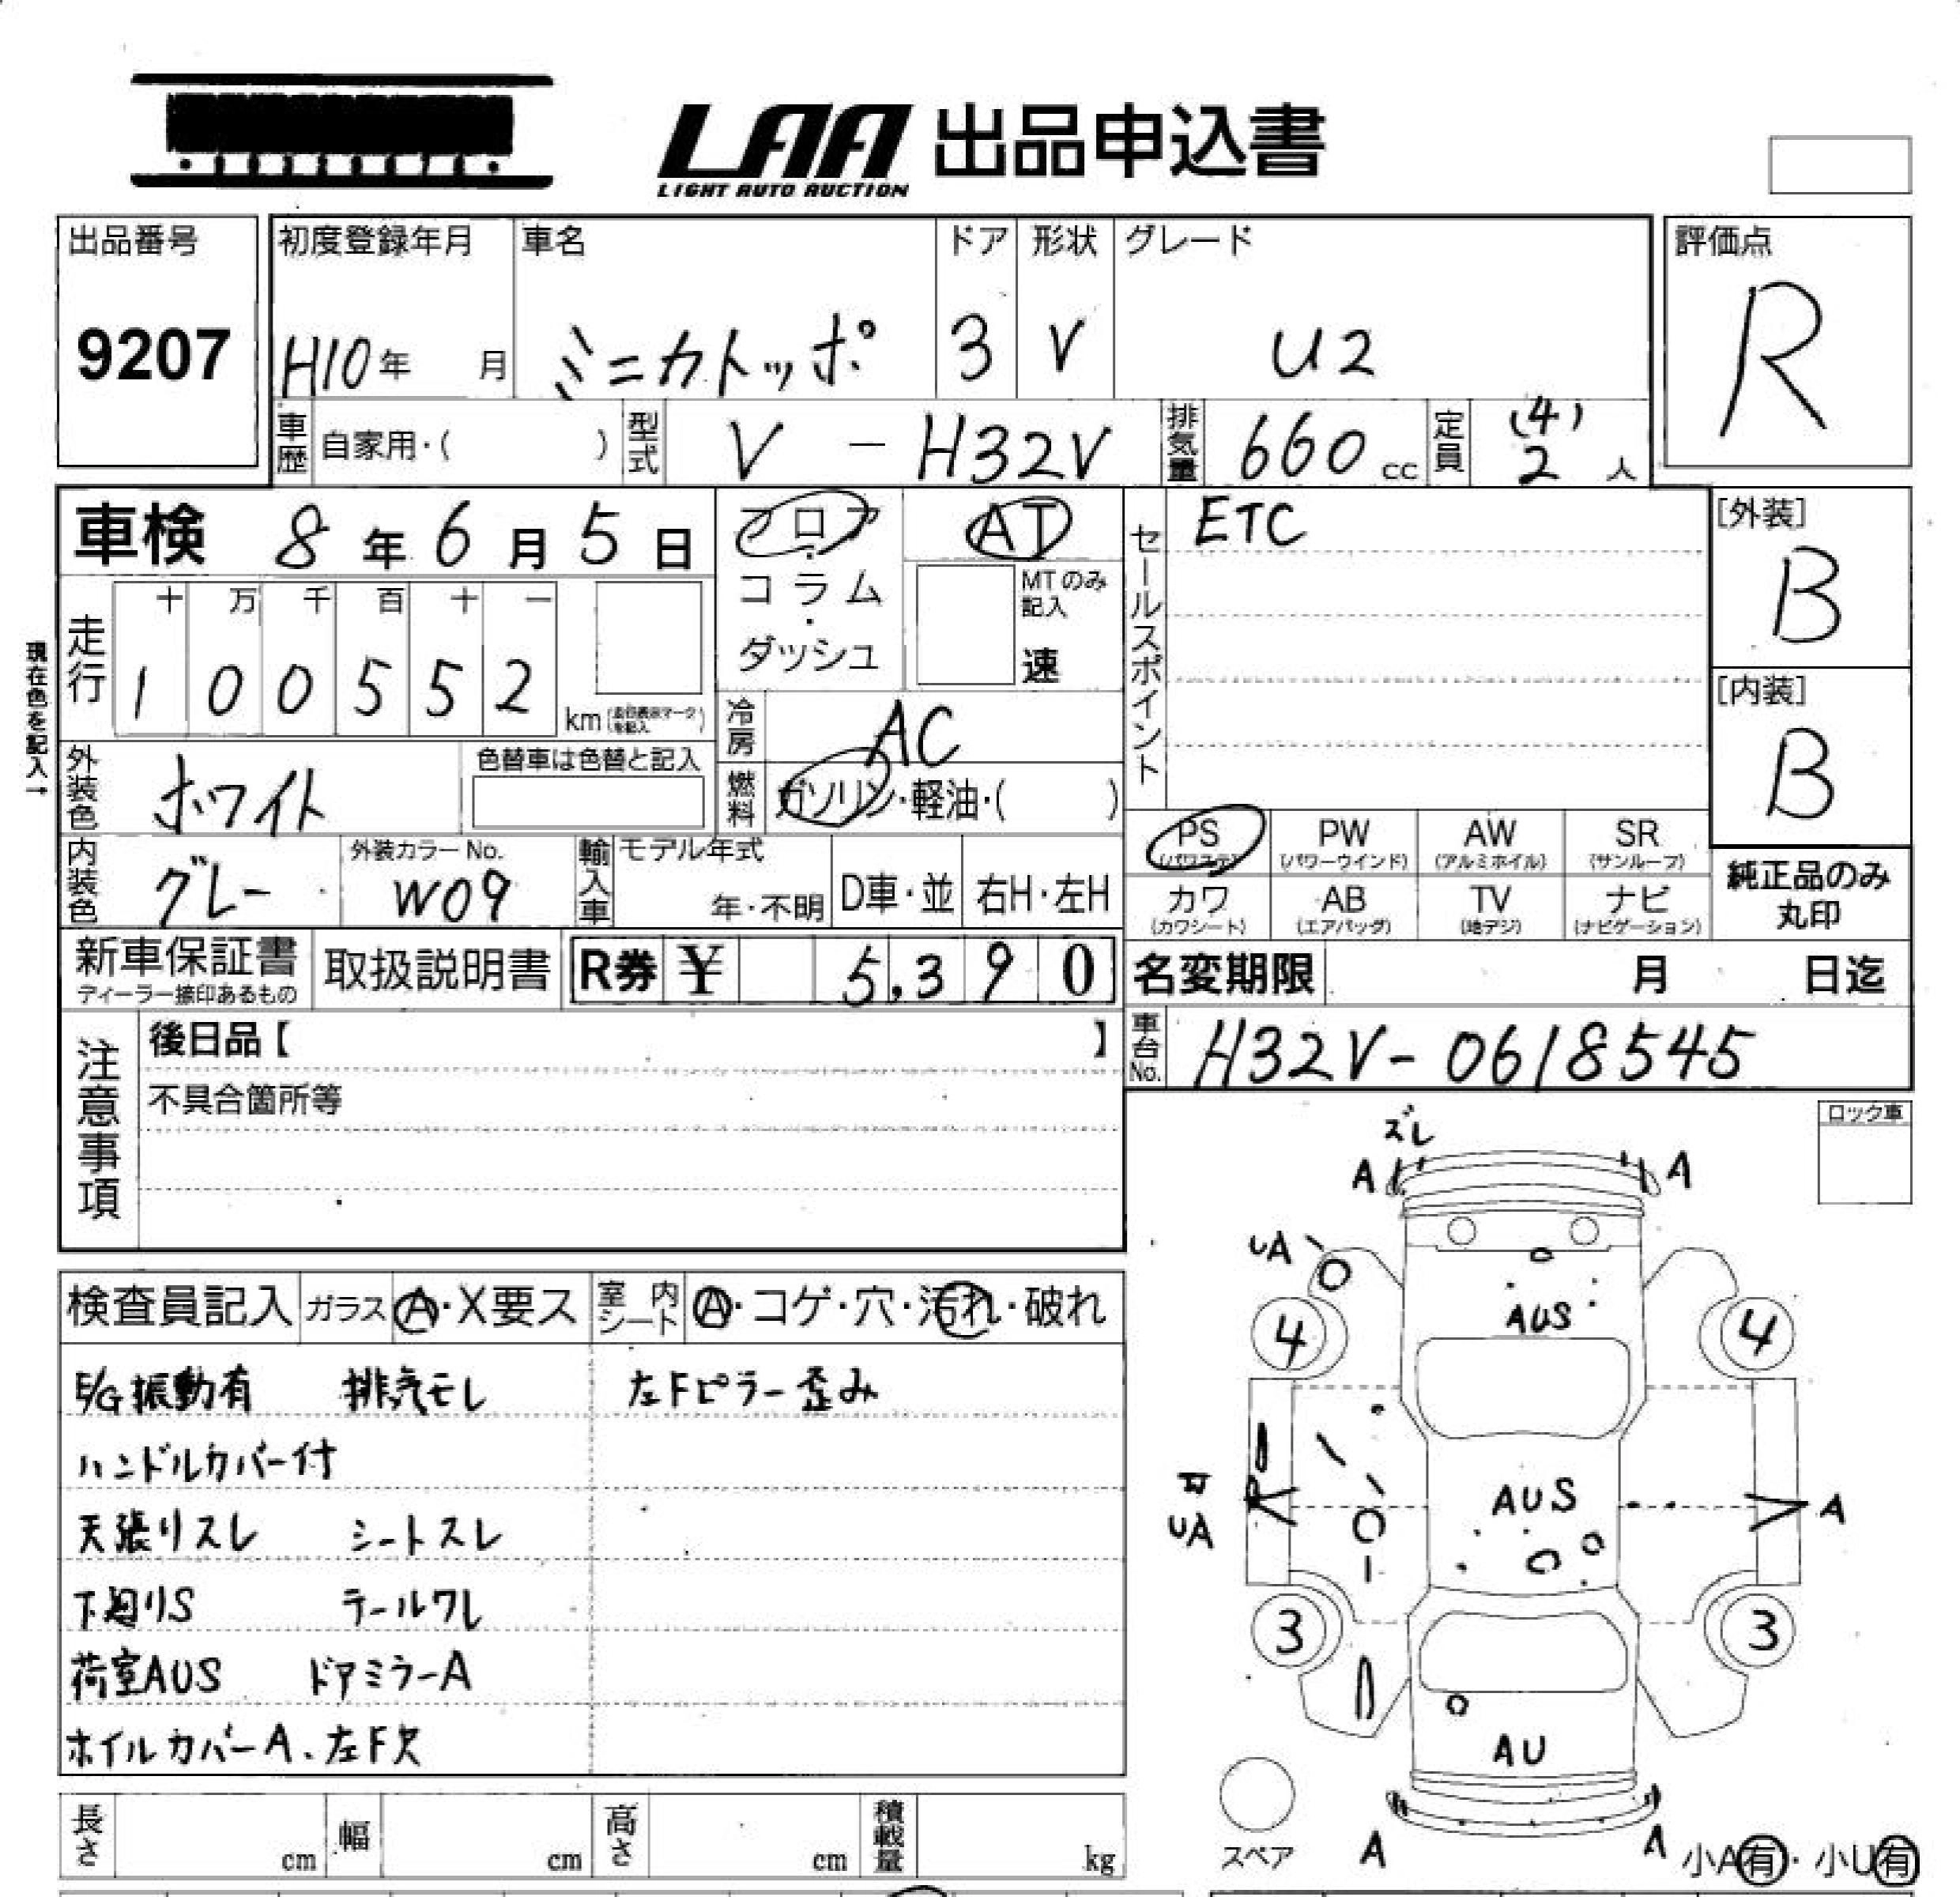 LAA 出品申込書
LIGHT AUTO AUCTION
出品番号
9207
初度登録年月
H10年 月
車名
ミニカトッポ
ドア
3
形状
V
グレード
U2
評価点
R
車歴 自家用・( )
型式 V - H32V
排気量 660 cc
定員 (4) 2 人
車検 8年 6月 5日
フロア・コラム・ダッシュ
AT
MTのみ記入
速
セールスポイント
ETC
[外装]
B
[内装]
B
現在色を記入→
走行
十 万 千 百 十 一
1 0 0 5 5 2 km
冷房 AC
燃料 ガソリン・軽油・( )
外装色 ホワイト
色替車は色替と記入
内装色 グレー
外装カラーNo.
W09
輸入車 モデル年式
年・不明
D車・並
右H・左H
PS (パワステ)
PW (パワーウインド)
AW (アルミホイル)
SR (サンルーフ)
カワ (カワシート)
AB (エアバッグ)
TV (地デジ)
ナビ (ナビゲーション)
純正品のみ
丸印
新車保証書
ディーラー捺印あるもの
取扱説明書
R券 ¥ 5,390
名変期限 月 日迄
車台No. H32V-0618545
注意事項
後日品【 】
不具合箇所等
ロック車
検査員記入 ガラス A・X要ス
室内シート A・コゲ・穴・汚れ・破れ
E/G振動有 排気モレ 左Fピラー歪み
ハンドルカバー付
天張りスレ シートスレ
下廻りS テールワレ
荷室AUS ドアミラーA
ホイルカバーA、左F欠
ズレ
A A
UA
AUS
4 4
AUS
UA
A
3 3
AU
A A
スペア
小A有・小U有
長さ cm
幅 cm
高さ cm
積載量 kg